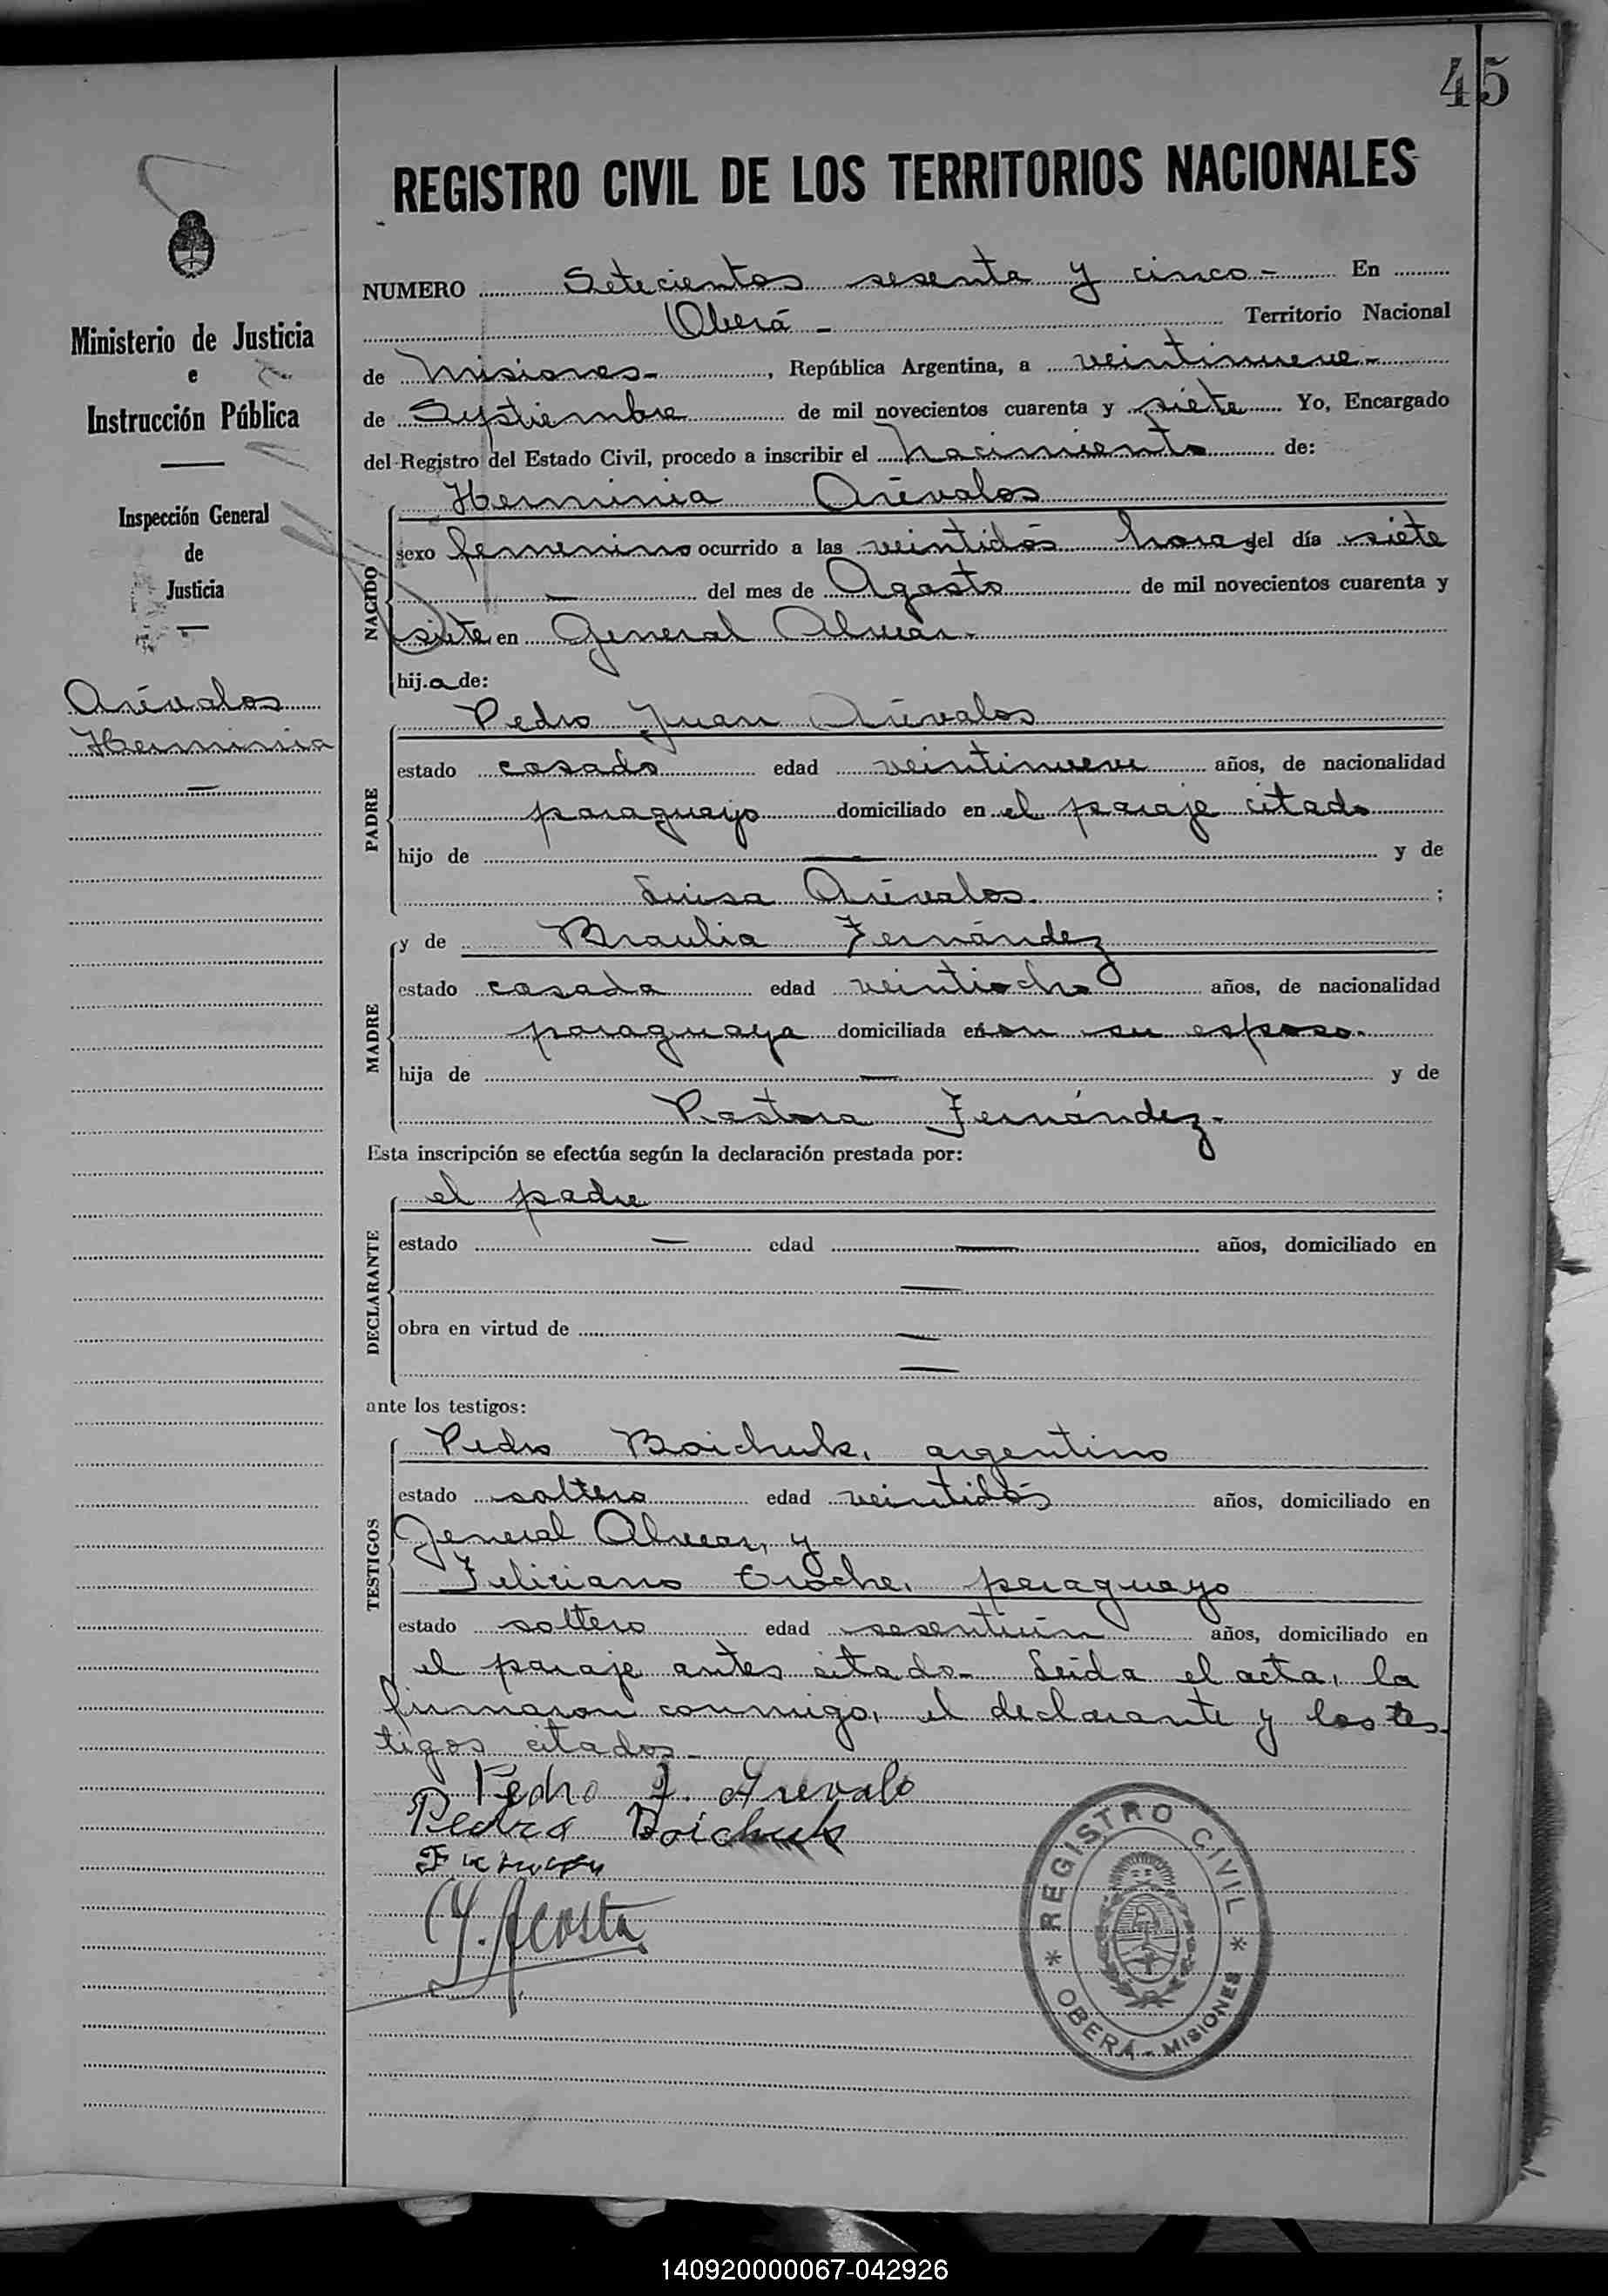 45
REGISTRO CIVIL DE LOS TERRITORIOS NACIONALES
Ministerio de Justicia
e
Instrucción Pública
Inspección General
de
Justicia
Arévalos
Herminia
NUMERO Setecientos sesenta y cinco.- En
Oberá - Territorio Nacional
de Misiones-, República Argentina, a veintinueve-
de Septiembre de mil novecientos cuarenta y siete Yo, Encargado
del Registro del Estado Civil, procedo a inscribir el nacimiento de:
NACIDO
Herminia Arévalos
sexo femenino ocurrido a las veintidós horas del día siete
— del mes de Agosto de mil novecientos cuarenta y
siete en General Alvear.-
hij.a de:
PADRE
Pedro Juan Arévalos
estado casado edad veintinueve años, de nacionalidad
paraguayo domiciliado en el paraje citado
hijo de — y de
Luisa Arévalos. ;
MADRE
y de Braulia Fernández
estado casada edad veintiocho años, de nacionalidad
paraguaya domiciliada con su esposo.
hija de — y de
Pastora Fernández.-
Esta inscripción se efectúa según la declaración prestada por:
DECLARANTE
el padre
estado — edad — años, domiciliado en
—
obra en virtud de —
—
ante los testigos:
TESTIGOS
Pedro Boichuk, argentino
estado soltero edad veintidós años, domiciliado en
General Alvear, y
Feliciano paraguayo
estado soltero edad sesentiún años, domiciliado en
el paraje antes citado.- Leida el acta, la
firmaron conmigo, el declarante y los tes-
tigos citados.-
Pedro J. Arevalo
Pedro Boichuk
Y. Acosta
REGISTRO CIVIL
* OBERÁ - MISIONES *
140920000067-042926